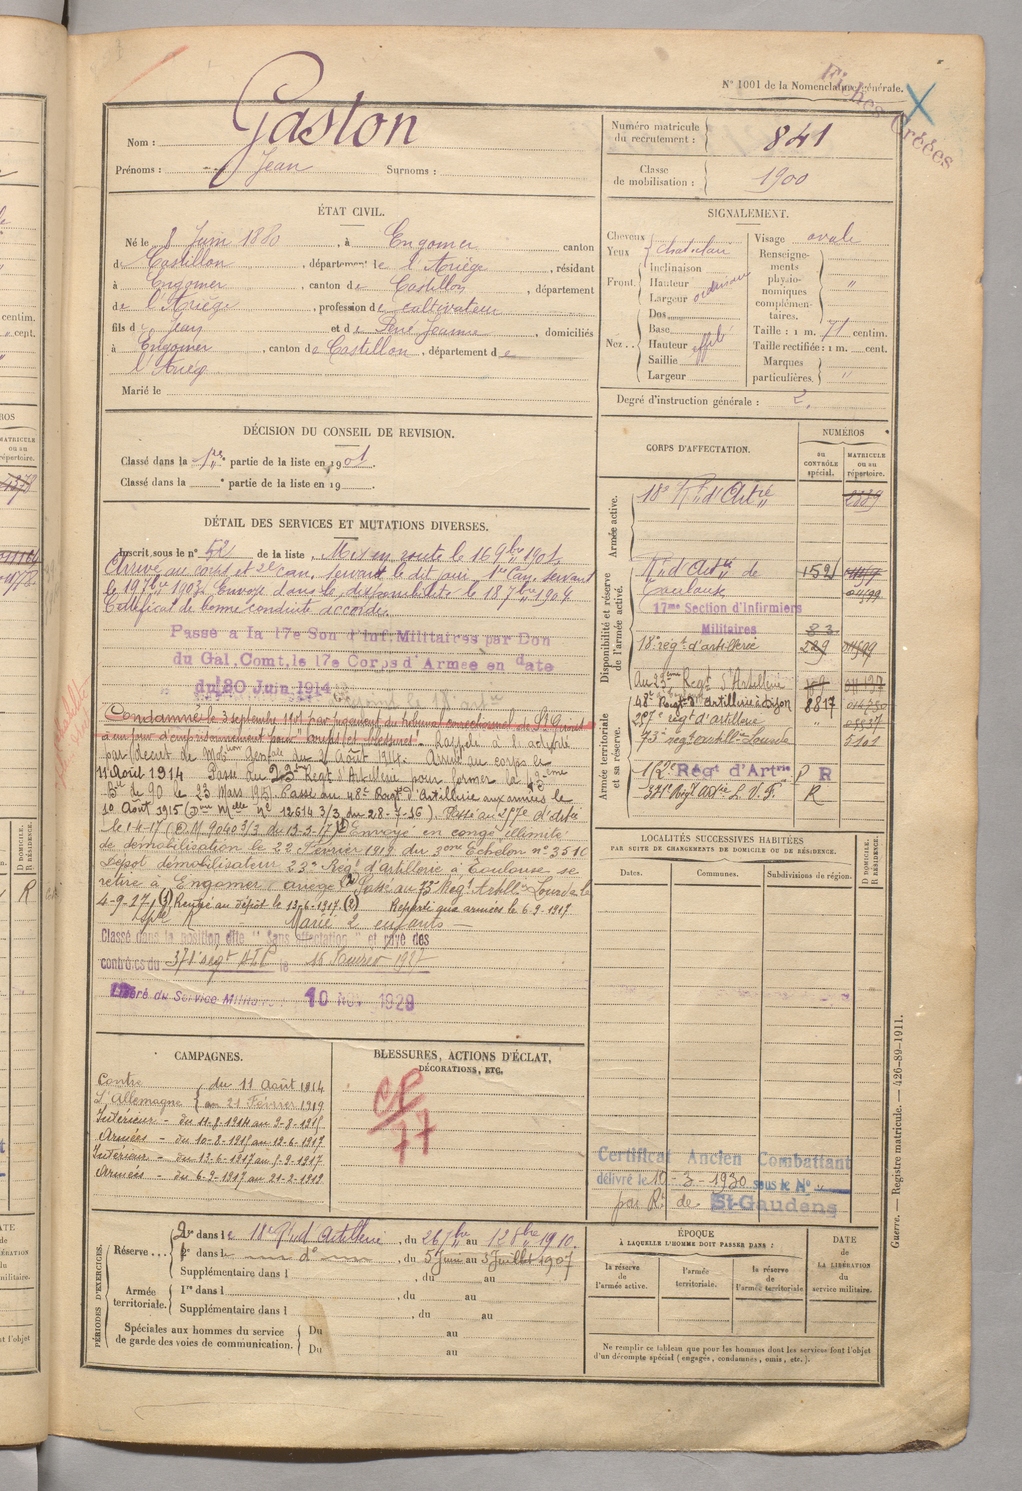 N° 1001 de la Nomenclature générale.
Fiches Créées
Nom : Gaston
Prénoms : Jean Surnoms :
Numéro matricule du recrutement : 841
Classe de mobilisation : 1900
ÉTAT CIVIL.
Né le 8 Juin 1880, à Engomer canton
de Castillon, département de l'Ariège, résidant
à Engomer, canton de Castillon, département
de l'Ariège, profession de cultivateur
fils de Jean et de Péré Jeanne, domiciliés
à Engomer, canton de Castillon, département de
l'Ariég
Marié le
SIGNALEMENT.
Cheveux
Yeux
Front. Inclinaison
Hauteur
Largeur ordinaire
Nez.. Dos
Base
Hauteur effilé
Saillie
Largeur
Visage ovale
Renseignements physionomiques complémentaires. "
Taille : 1 m. 71 centim.
Taille rectifiée : 1 m. cent.
Marques particulières. "
Degré d'instruction générale : 2.
DÉCISION DU CONSEIL DE REVISION.
Classé dans la 1re partie de la liste en 1901.
Classé dans la " partie de la liste en 19
DÉTAIL DES SERVICES ET MUTATIONS DIVERSES.
Inscrit sous le n° 52 de la liste. Mis en route le 16 9bre 1901.
Arrivé au corps et 2e Can. servant le dit jour. 1er Can. servant
le 19 7bre 1903. Envoyé dans la disponibilité le 18 7bre 1904
Certificat de bonne conduite accordé.
Passé a la 17e Son d'Inf. Militaires par Don
du Gal. Comt. le 17e Corps d'Armée en date
du 30 Juin 1914
Condamné le 3 septembre 1901 par jugement du tribunal correctionnel de St Girons
à un jour d'emprisonnement pour "coups et blessures". Rappelé à l'activité
par décret de Mobion Génale du 1 Août 1914. Arrivé au corps le
11 Août 1914 Passé au 23e Regt d'Artillerie pour former la
Bie de 90 le 23 Mars 1915. Passé au 48e Regt d'Artillerie aux armées le
10 Août 1915 (Don Melle n° 12614 3/3 du 28-7-16). Passé au 257e d'artie
le 1-4-17 (D.M. 9040 3/3 du 13-3-17) (1) Envoyé en congé illimité
de démobilisation le 22 Février 1919 du 3eme Echelon n° 3510
Dépôt démobilisateur 23e Régt d'artillerie à Toulouse se
retire à Engomer (ariège) Passé au 73e Regt Artllie Lourde le
4-9-27 (1) Rentré au dépôt le 13-6-1917. (2) Reparti aux armées le 6-9-1917
Marié 2 enfants
Classé dans la position dite "Sans affectation" et rayé des
contrôles du 371e régt ALVF le 15 Février 1927
Libéré du Service Militaire : 10 Nov 1929
CORPS D'AFFECTATION.
NUMÉROS
au contrôle spécial.
matricule ou au répertoire.
Armée active.
18e Rt d'Artie 2889
Disponibilité et réserve de l'armée active.
Rt d'Artie de Toulouse 1521
17me Section d'Infirmiers Militaires 83
18e régt d'artillerie 289
Au 23e Regt d'Artillerie 159
Armée territoriale et sa réserve.
48e Regt d'Artillerie à Dijon 8817
257e régt d'artillerie "
73e régt artillie Lourde 5101
Régt d'Artrie P R
371e Regt Artie L.V.F. R
LOCALITÉS SUCCESSIVES HABITÉES
PAR SUITE DE CHANGEMENTS DE DOMICILE OU DE RÉSIDENCE.
Dates. Communes. Subdivisions de région. D DOMICILE. R RÉSIDENCE.
CAMPAGNES.
Contre du 11 Août 1914
L'Allemagne au 21 Février 1919
Intérieur - du 11-8-1914 au 9-8-1915
Armées - du 10-8-1915 au 12-6-1917
Intérieur - du 13-6-1917 au 5-9-1917
Armées - du 6-9-1917 au 21-2-1919
BLESSURES, ACTIONS D'ÉCLAT,
DÉCORATIONS, ETC.
CP/77
Certificat Ancien Combattant
délivré le 10-3-1930 sous le N° "
par Rt de St-Gaudens
PÉRIODES D'EXERCICES.
Réserve... 2e dans le 18e Rt d'Artillerie, du 26 7bre au 12 8bre 1910.
1re dans le d°, du 5 Juin au 3 Juillet 1907
Supplémentaire dans l , du au
Armée territoriale. 1re dans l , du au
Supplémentaire dans l , du au
Spéciales aux hommes du service de garde des voies de communication. Du au
Du au
ÉPOQUE
À LAQUELLE L'HOMME DOIT PASSER DANS :
la réserve de l'armée active.
l'armée territoriale.
la réserve de l'armée territoriale
DATE de LA LIBÉRATION du service militaire.
Ne remplir ce tableau que pour les hommes dont les services font l'objet
d'un décompte spécial (engagés, condamnés, omis, etc.).
Guerre. — Registre matricule. — 426-89-1911.